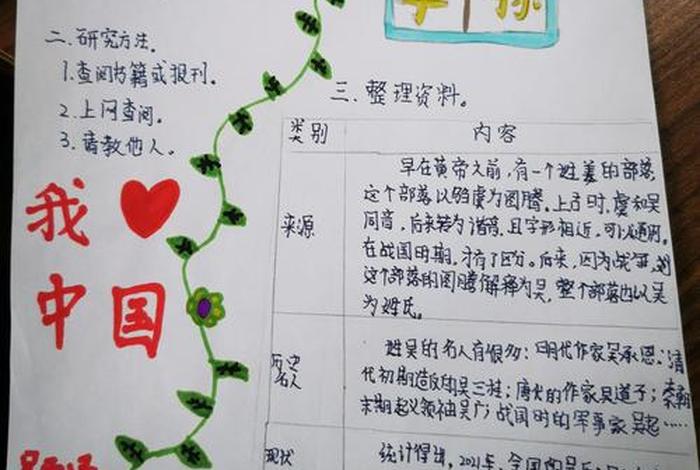 二.研究方法.
1.查阅书籍或报刊.
2.上网查阅.
3.请教他人.
我
中国
三.整理资料。
类别 内容
来源
早在黄帝之前,有一个姓姜的部落
这个部落以驺虞为图腾。上古时,虞和吴
同音,后来转为谐音,且字形相近,可以通用。
在战国时期,才有了区分。后来,因为战争,
这个部落的图腾解释为吴,整个部落也以吴
为姓氏。
历史
名人
姓吴的名人有很多:明代作家吴承恩;清
代初期造反的吴三桂;唐代的作家吴道子;秦朝
末期起义领袖吴广;战国时的军事家吴起……
现状
统计得出,2021年,全国的吴